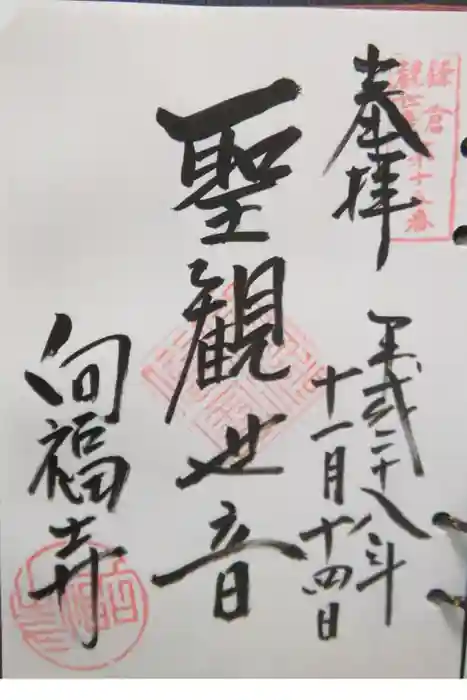 奉拝
鎌倉
観世音第十五番
平成二十八年
十一月十四日
聖観世音
向福寺